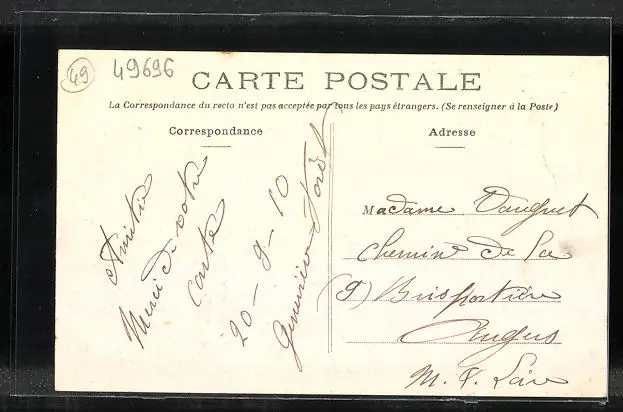 49
49696
CARTE POSTALE
La Correspondance du recto n'est pas acceptée par tous les pays étrangers. (Se renseigner à la Poste)
Correspondance
Adresse
Amitié
Merci de votre
carte
20-9-10
Geneviève
Madame Dauguet
Chemin de la
(9) Brispotière
Angers
M. & Loire